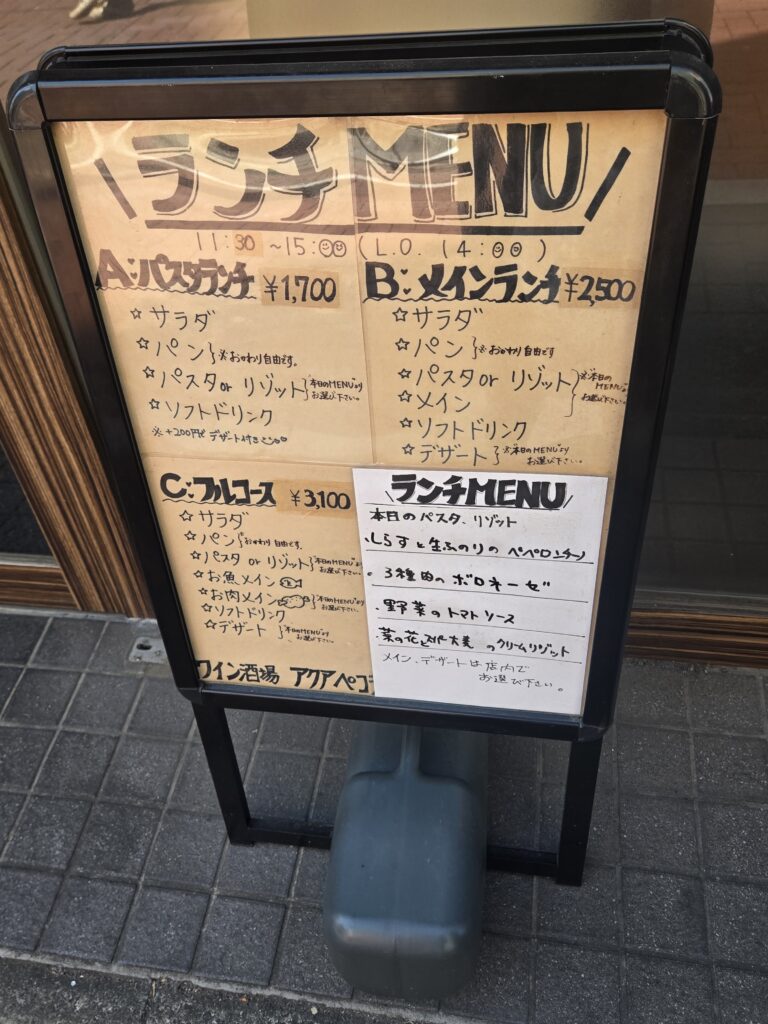 ランチMENU
11:30 ~15:00 (L.O. 14:00)
A:パスタランチ ¥1,700
☆サラダ
☆パン}※おかわり自由です。
☆パスタor リゾット}※本日のMENUより
お選び下さい。
☆ソフトドリンク
※+200円で デザート付き
B:メインランチ ¥2,500
☆サラダ
☆パン}※おかわり自由です
☆パスタor リゾット
☆メイン
}※"本日の
MENU"より
お選び下さい。
☆ソフトドリンク
☆デザート}※"本日のMENU"より
お選び下さい。
C:フルコース ¥3,100
☆サラダ
☆パン}おかわり自由です.
☆パスタ or リゾット}"本日のMENU"より
お選び下さい。
☆お魚メイン
☆お肉メイン}※"本日のMENU"より
お選び下さい。
☆ソフトドリンク
☆デザート}"本日のMENU"より
お選び下さい。
ワイン酒場 アクアペコラ
ランチMENU
本日のパスタ、リゾット
・しらすと生ふのりの ペペロンチーノ
・3種肉の ボロネーゼ
・野菜のトマトソース
・菜の花とスーパー大麦 のクリームリゾット
メイン、デザートは店内で
お選び下さい。